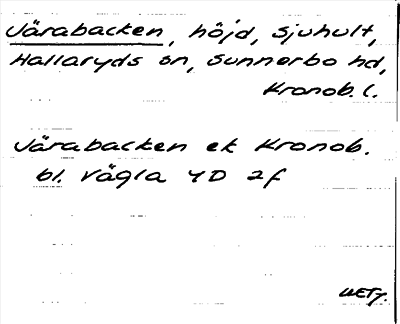 Järabacken, höjd, Sjuhult,
Hallaryds sn, Sunnerbo hd,
Kronob. l.
Järabacken ek Kronob.
bl. Vägla 4D 2f